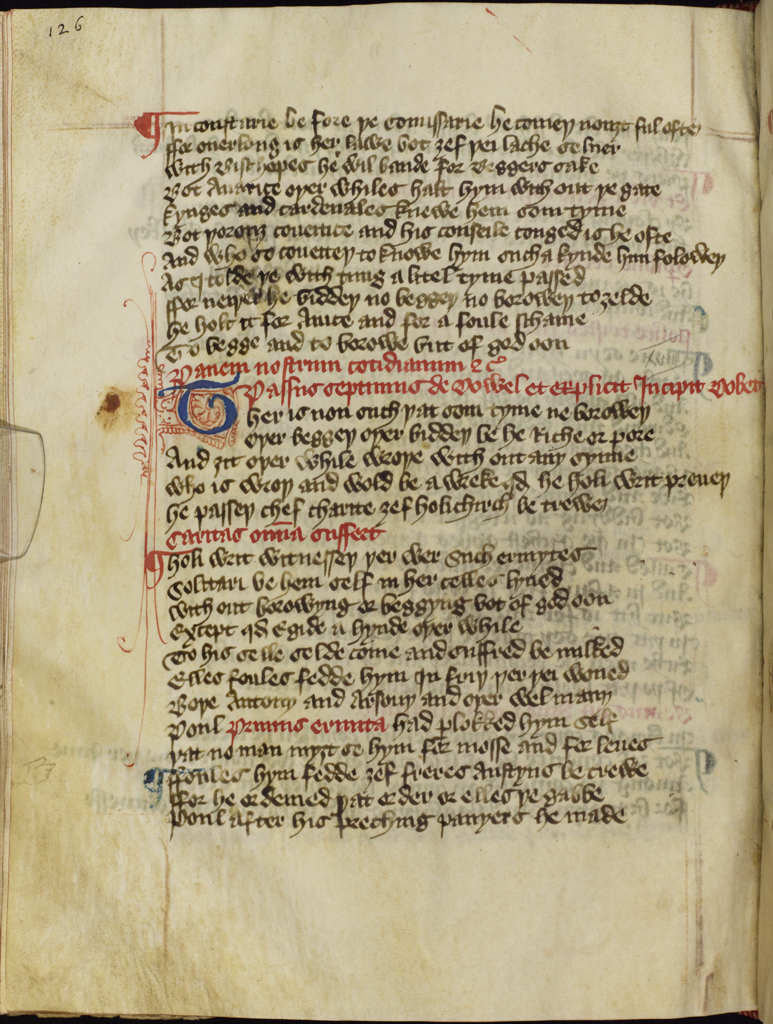 126
In constarie be fore þe comissarie he comeþ nouȝt ful ofte
ffor ouerlong is her lawe bot ȝef þei lache seluer
With bisshopes he wil bande for beggers sake
Bot Auarice oþer whiles halt hym with out þe gate
Kynges and cardenales knewe hem som tyme
Bot þorouȝ coueitice and his conseile conged is he ofte
And who so coueiteþ to knowe hym such a kynde him foloweþ
As I tolde ȝe with tung a litel tyme passed
ffor neiþer he biddeþ no beggeþ no boroweþ to ȝelde
He holt it for a vice and for a foule schame
To begge and to borowe but of god oon
Panem nostrum cotidianum &c
Passus septimus de dowel et explicit Incipit dobet
Ther is non such þat som tyme ne boroweþ
Oþer beggeþ oþer biddeþ be he riche or pore
And ȝit oþer while wroþe with out any synne
Who is wroþ and wold be a wreke qd he holi writ preueþ
he passeþ chef charite ȝef holichirch be trewe
Caritas omnia suffert
Holi writ witnesseþ þer wer such ermytes
Solitari be hem self in her celles lyued
With out borowyng or beggyng bot of god oon
Except qd Egide a hynde oþer while
To his selle selde come and suffred be milked
Elles foules fedde hym In friþ þer þei woned
Boþe Antony and Arsony and oþer wel many
Poul primus ermita had plokked hym self
þat no man myȝt se hym for mosse and for leues
ffoules hym fedde ȝef freres Austyns be trewe
ffor he ordeined þat order or elles þe gabbe
Poul after his preching panyers he made